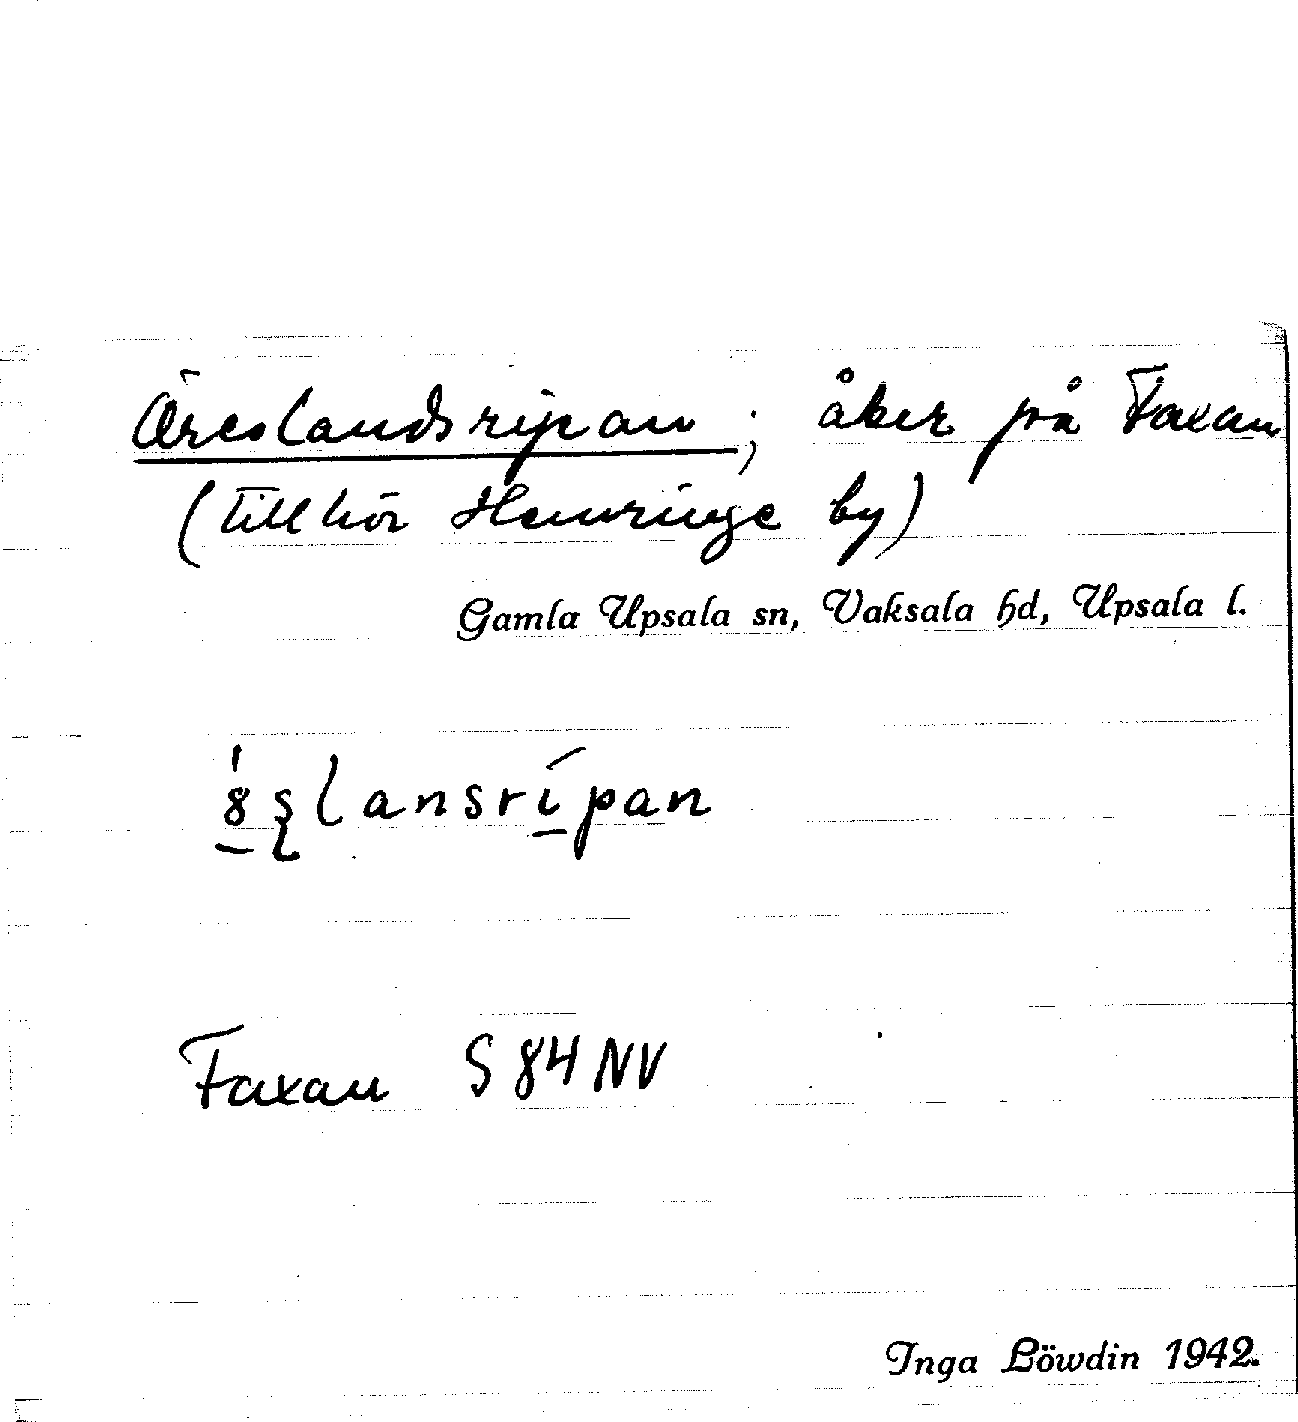 Öreslandsripan; åker på Faxan
(tillhör Hemringe by)
Gamla Upsala sn, Vaksala hd, Upsala l.
Faxan S 84 NV
Inga Löwdin 1942.